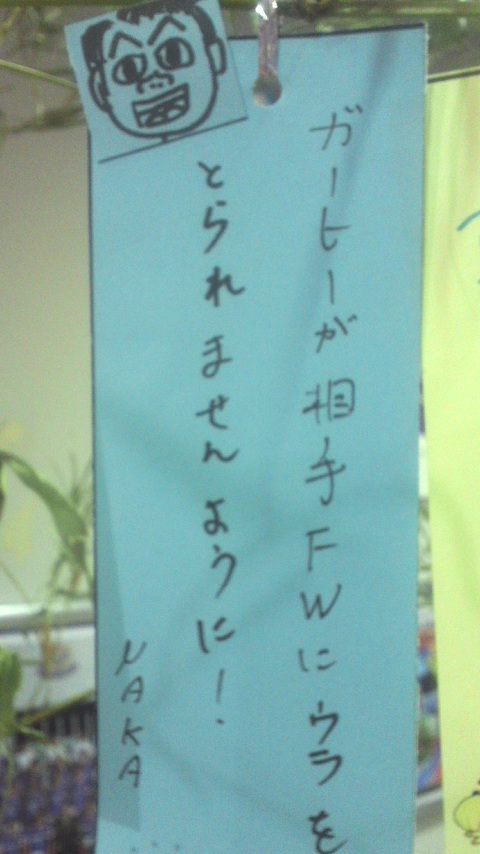 ガーヒーが相手FWにウラを
とられませんように!
NAKA